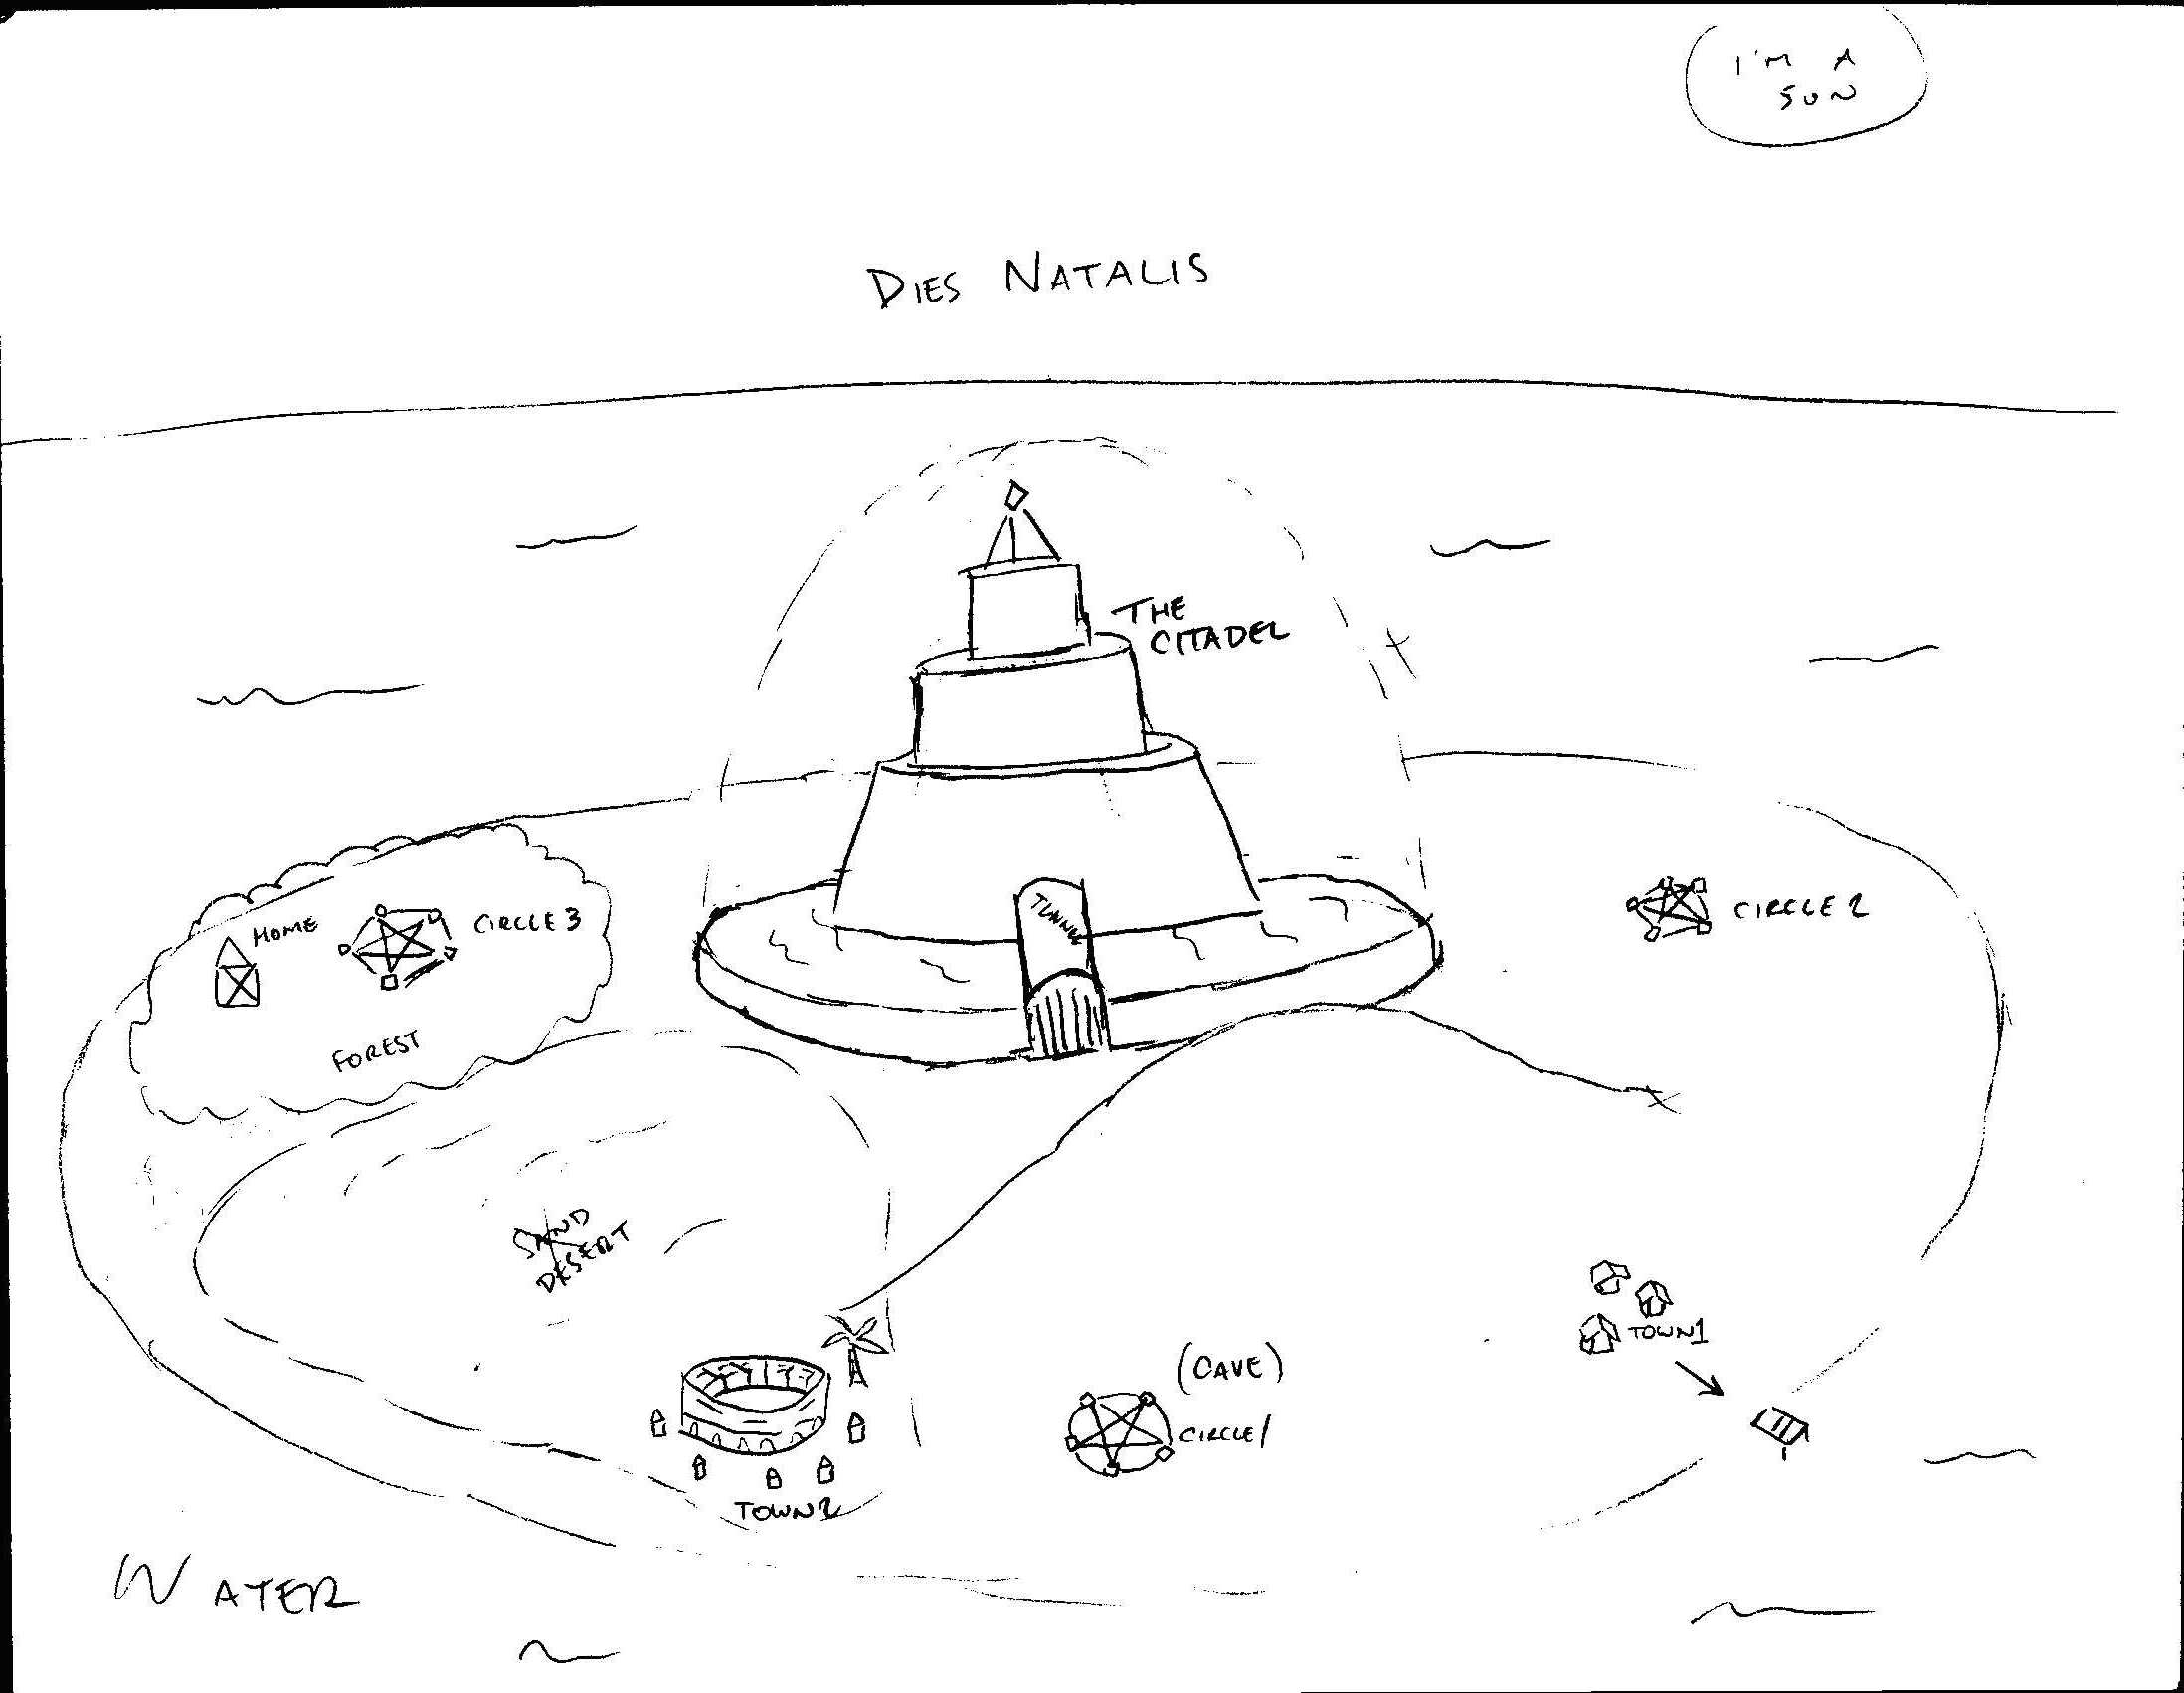 I'M A
SUN
DIES NATALIS
THE
CITADEL
TUNNEL
HOME
CIRCLE 3
FOREST
CIRCLE 2
SAND
DESERT
TOWN1
(CAVE)
CIRCLE 1
TOWN2
WATER